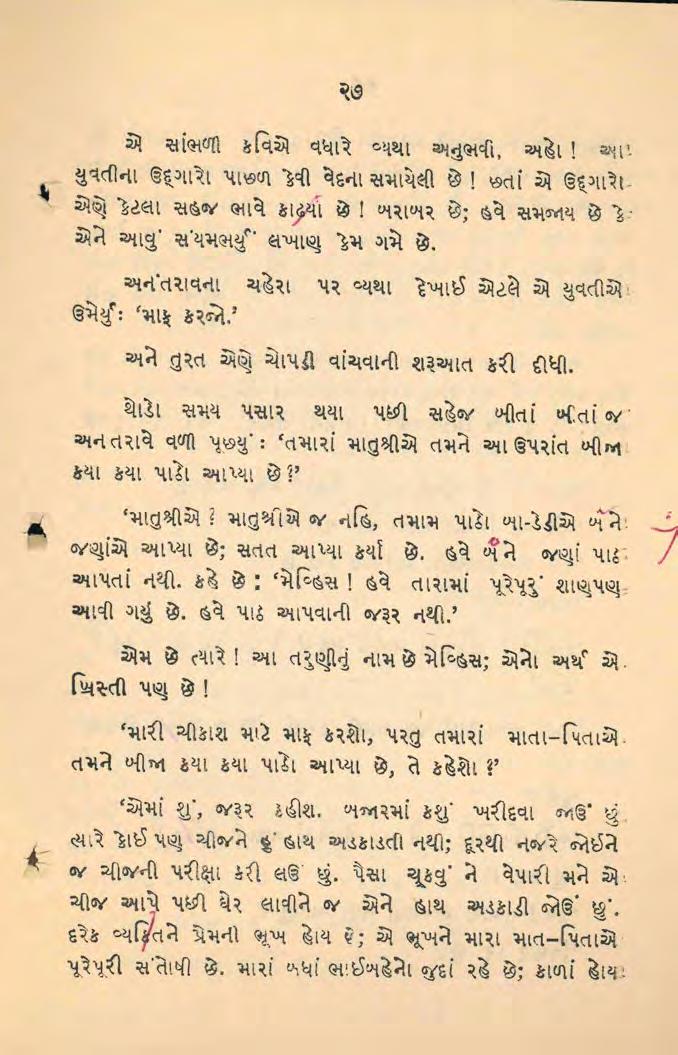 ૨૭
એ સાંભળી કવિએ વધારે વ્યથા અનુભવી, અહો ! આ
યુવતીના ઉદ્ગારો પાછળ કેવી વેદના સમાયેલી છે ! છતાં એ ઉદ્ગારો
એણે કેટલા સહજ ભાવે કાઢ્યાં છે ! બરાબર છે; હવે સમજાય છે કે
એને આવું સંયમભર્યું લખાણ કેમ ગમે છે.
અનંતરાવના ચહેરા પર વ્યથા દેખાઈ એટલે એ યુવતીએ
ઉમેર્યું : ‘માફ કરજો.’
અને તુરત એણે ચોપડી વાંચવાની શરૂઆત કરી દીધી.
થોડો સમય પસાર થયા પછી સહેજ બીતાં બીતાં જ
અનંતરાવે વળી પૂછ્યું : ‘તમારાં માતુશ્રીએ તમને આ ઉપરાંત બીજા
કયા કયા પાઠો આપ્યા છે ?’
‘માતુશ્રીએ ? માતુશ્રીએ જ નહિ, તમામ પાઠો બા-ડેડીએ બંને
જણાંએ આપ્યા છે; સતત આપ્યા કર્યા છે. હવે બંને જણાં પાઠ
આપતાં નથી. કહે છે : ‘મેવ્હિસ ! હવે તારામાં પૂરેપૂરું શાણપણ
આવી ગયું છે. હવે પાઠ આપવાની જરૂર નથી.’
એમ છે ત્યારે ! આ તરુણીનું નામ છે મેવ્હિસ; એનો અર્થ એ
ખ્રિસ્તી પણ છે !
‘મારી ચીકાશ માટે માફ કરશો, પરંતુ તમારાં માતા–પિતાએ
તમને બીજા કયા કયા પાઠો આપ્યા છે, તે કહેશો ?’
‘એમાં શું, જરૂર કહીશ. બજારમાં કશું ખરીદવા જાઉં છું
ત્યારે કોઈ પણ ચીજને હું હાથ અડકાડતી નથી; દૂરથી નજરે જોઈને
જ ચીજની પરીક્ષા કરી લઉં છું. પૈસા ચૂકવું ને વેપારી મને એ
ચીજ આપે પછી ઘેર લાવીને જ એને હાથ અડકાડી જોઉં છું.
દરેક વ્યક્તિને પ્રેમની ભૂખ હોય છે; એ ભૂખને મારા માત–પિતાએ
પૂરેપૂરી સંતોષી છે. મારાં બધાં ભાઈબહેનો જુદાં રહે છે; કાળાં હોય